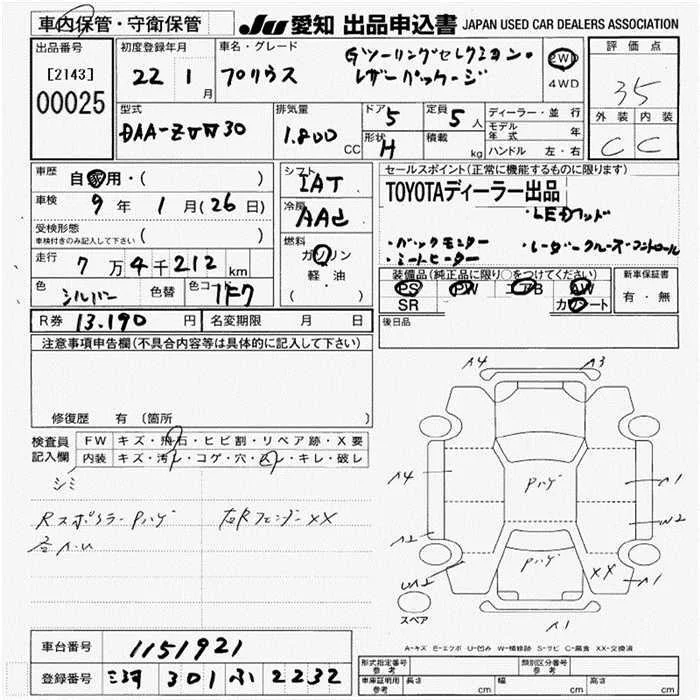 車内保管・守衛保管 JU 愛知 出品申込書 JAPAN USED CAR DEALERS ASSOCIATION
出品番号 [2143] 00025
初度登録年月 22 1月
車名・グレード プリウス Gツーリングセレクション・
レザーパッケージ
2WD
4WD
評価点 35
外装 内装
C C
型式 DAA-ZVW30
排気量 1.800 CC
ドア 5
形状 H
定員 5人
積載 kg
ディーラー・並行
モデル年式 年
ハンドル 左・右
車歴 自家用・( )
車検 9年 1月(26日)
受検形態 ( )
車検付きのみ記入して下さい
走行 7万4千212km
色 シルバー 色替 色コード 1F7
シフト IAT
冷房 AAC
燃料 ガソリン
軽・油
( )
セールスポイント(正常に機能するものに限ります)
TOYOTAディーラー出品
・LEDヘッド
・バックモニター ・レーダークルーズコントロール
・シートヒーター
装備品(純正品に限り○をつけてください)
PS PW エアB AW
SR カワシート
新車保証書
有・無
R券 13.190円 名変期限 月 日
後日品
注意事項申告欄(不具合内容等は具体的に記入して下さい)
修復歴 有 〔箇所
検査員記入欄
FW キズ・飛石・ヒビ割・リペア跡・X要
内装 キズ・汚レ・コゲ・穴・ムレ・キレ・破レ
シミ
Rスポイラー Pハゲ 右Rフェンダー XX
A4 A3
A4 Pハゲ A1
W2
A2
UA2 Pハゲ XX A1
スペア A1
A-キズ E-エクボ U-凹み W-補修跡 S-サビ C-腐食 XX-交換済
車台番号 1151921
登録番号 三河 301 ふ 2232
形式指定番号 参考
類別区分番号 参考
車庫証明用 参考 長さ cm 幅 cm 高さ cm